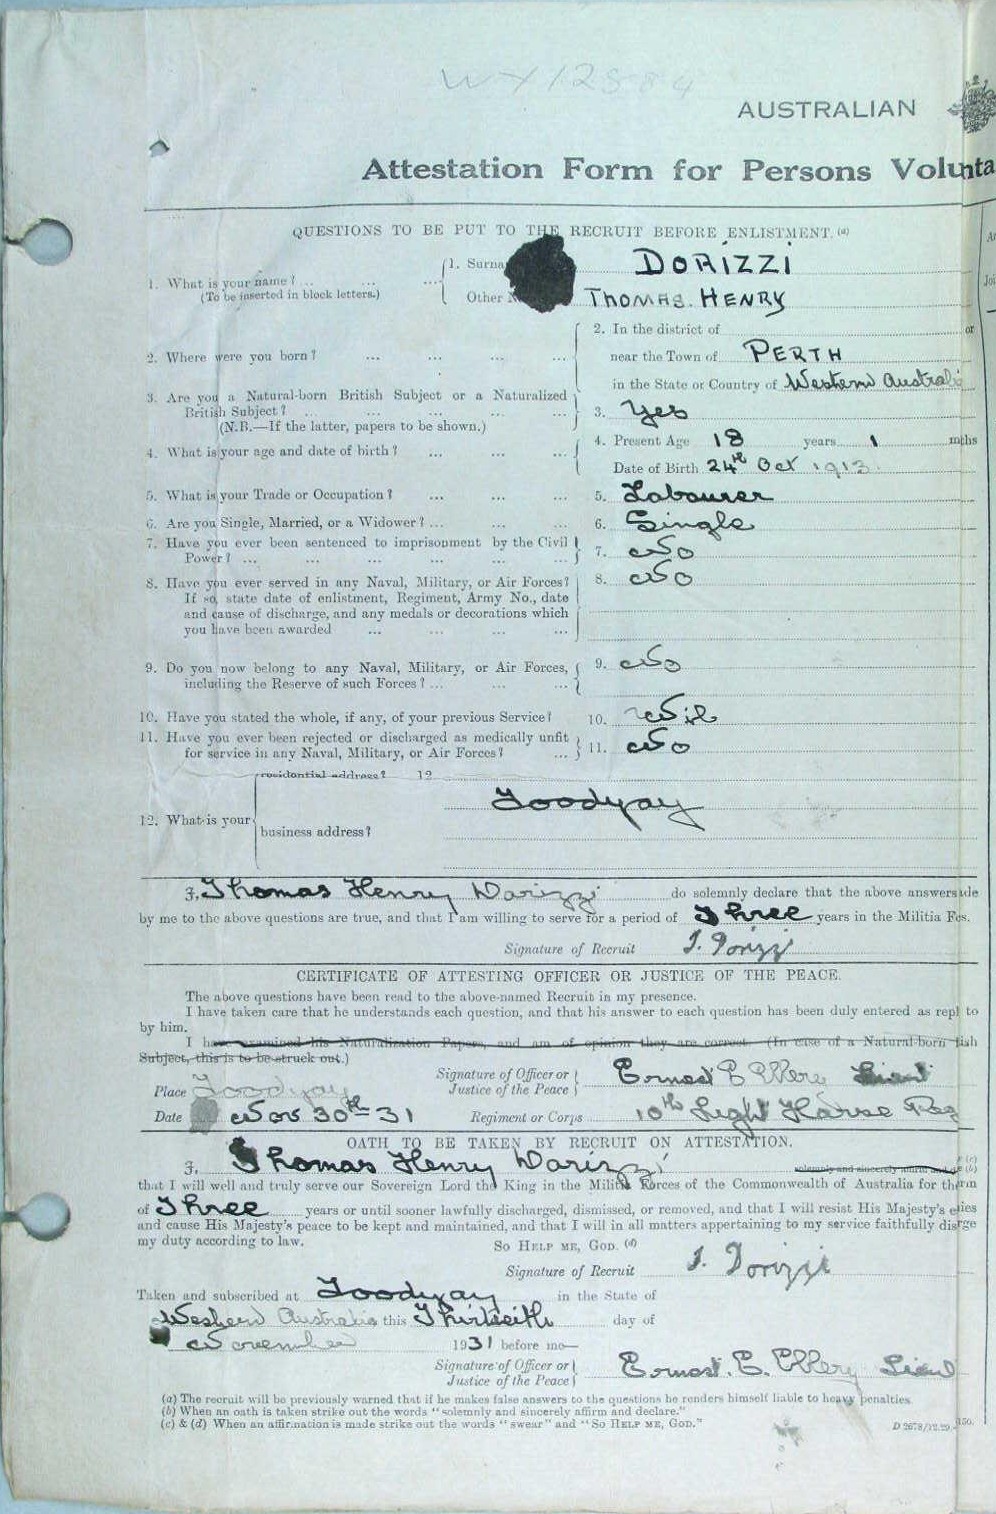 WX12884
AUSTRALIAN
Attestation Form for Persons Volunta
QUESTIONS TO BE PUT TO THE RECRUIT BEFORE ENLISTMENT. (a)
1. What is your name? ... ... ... 1. Surna DORIZZI
(To be inserted in block letters.) Other THOMAS. HENRY
2. Where were you born? ... ... ... ... 2. In the district of or
near the Town of PERTH
in the State or Country of Western Australia
3. Are you a Natural-born British Subject or a Naturalized British Subject? ... ... ... ... 3. Yes
(N.B.—If the latter, papers to be shown.)
4. What is your age and date of birth? ... ... ... 4. Present Age 18 years 1 mths
Date of Birth 24th Oct 1913
5. What is your Trade or Occupation? ... ... ... 5. Labourer
6. Are you Single, Married, or a Widower? ... ... ... 6. Single
7. Have you ever been sentenced to imprisonment by the Civil
Power? ... ... ... ... ... 7. No
8. Have you ever served in any Naval, Military, or Air Forces? 8. No
If so, state date of enlistment, Regiment, Army No., date
and cause of discharge, and any medals or decorations which
you have been awarded ... ... ... ...
9. Do you now belong to any Naval, Military, or Air Forces, 9. No
including the Reserve of such Forces? ... ... ...
10. Have you stated the whole, if any, of your previous Service? 10. Nil
11. Have you ever been rejected or discharged as medically unfit
for service in any Naval, Military, or Air Forces? ... 11. No
residential address? 12
Toodyay
12. What is your
business address?
I, Thomas Henry Dorizzi do solemnly declare that the above answers de
by me to the above questions are true, and that I am willing to serve for a period of Three years in the Militia Fcs.
Signature of Recruit T. Dorizzi
CERTIFICATE OF ATTESTING OFFICER OR JUSTICE OF THE PEACE.
The above questions have been read to the above-named Recruit in my presence.
I have taken care that he understands each question, and that his answer to each question has been duly entered as repl to
by him.
I have examined his Naturalization Papers, and am of opinion they are correct. (In case of a Natural-born tish
Subject, this is to be struck out.)
Signature of Officer or
Justice of the Peace Ernest E Ellery Lieut
Place Toodyay
Date Nov 30th 31 Regiment or Corps 10th Light Horse Reg
OATH TO BE TAKEN BY RECRUIT ON ATTESTATION.
I, Thomas Henry Dorizzi solemnly and sincerely affirm and (c) (b)
that I will well and truly serve our Sovereign Lord the King in the Militia Forces of the Commonwealth of Australia for the rm
of Three years or until sooner lawfully discharged, dismissed, or removed, and that I will resist His Majesty's e ies
and cause His Majesty's peace to be kept and maintained, and that I will in all matters appertaining to my service faithfully dis rge
my duty according to law.
SO HELP ME, GOD. (d)
Signature of Recruit T. Dorizzi
Taken and subscribed at Toodyay in the State of
Western Australia this Thirtieth day of
November 1931 before me—
Signature of Officer or
Justice of the Peace Ernest. E. Ellery Lieut
(a) The recruit will be previously warned that if he makes false answers to the questions he renders himself liable to heavy penalties.
(b) When an oath is taken strike out the words "solemnly and sincerely affirm and declare."
(c) & (d) When an affirmation is made strike out the words "swear" and "SO HELP ME, GOD."
D 2678/12.29.—150.